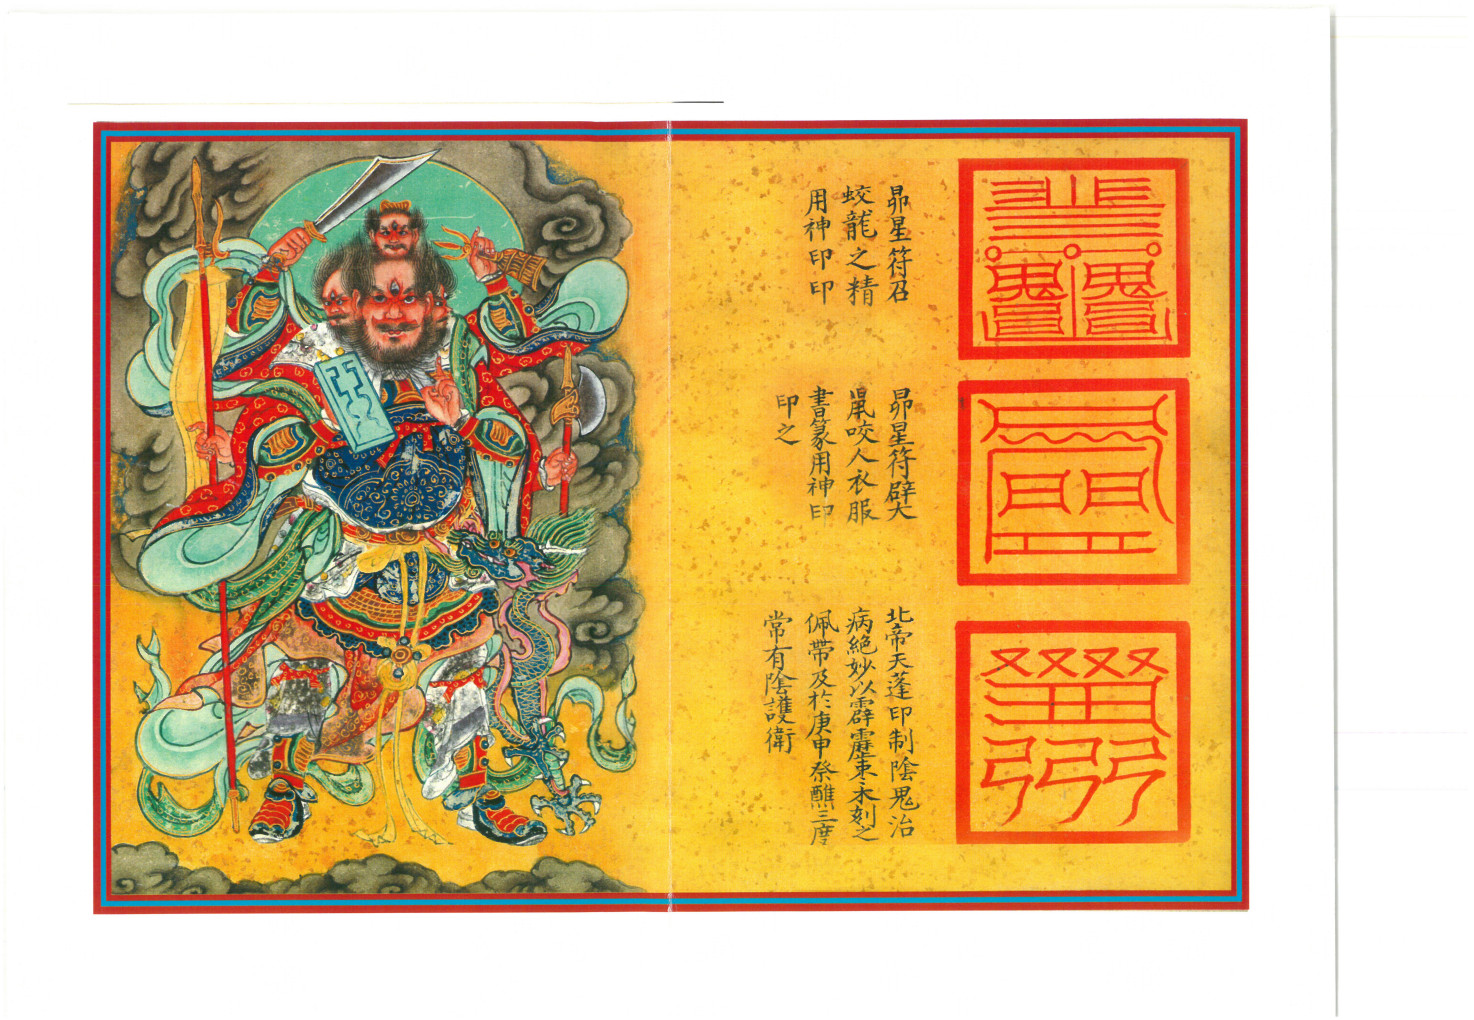 昴星符召
蛟龍之精
用神印印
昴星符辟犬
鼠咬人衣服
書篆用神印
印之
北帝天蓬印制陰鬼治
病絕妙以霹靂棗木刻之
佩帶及於庚申祭醮三度
常有陰護衛